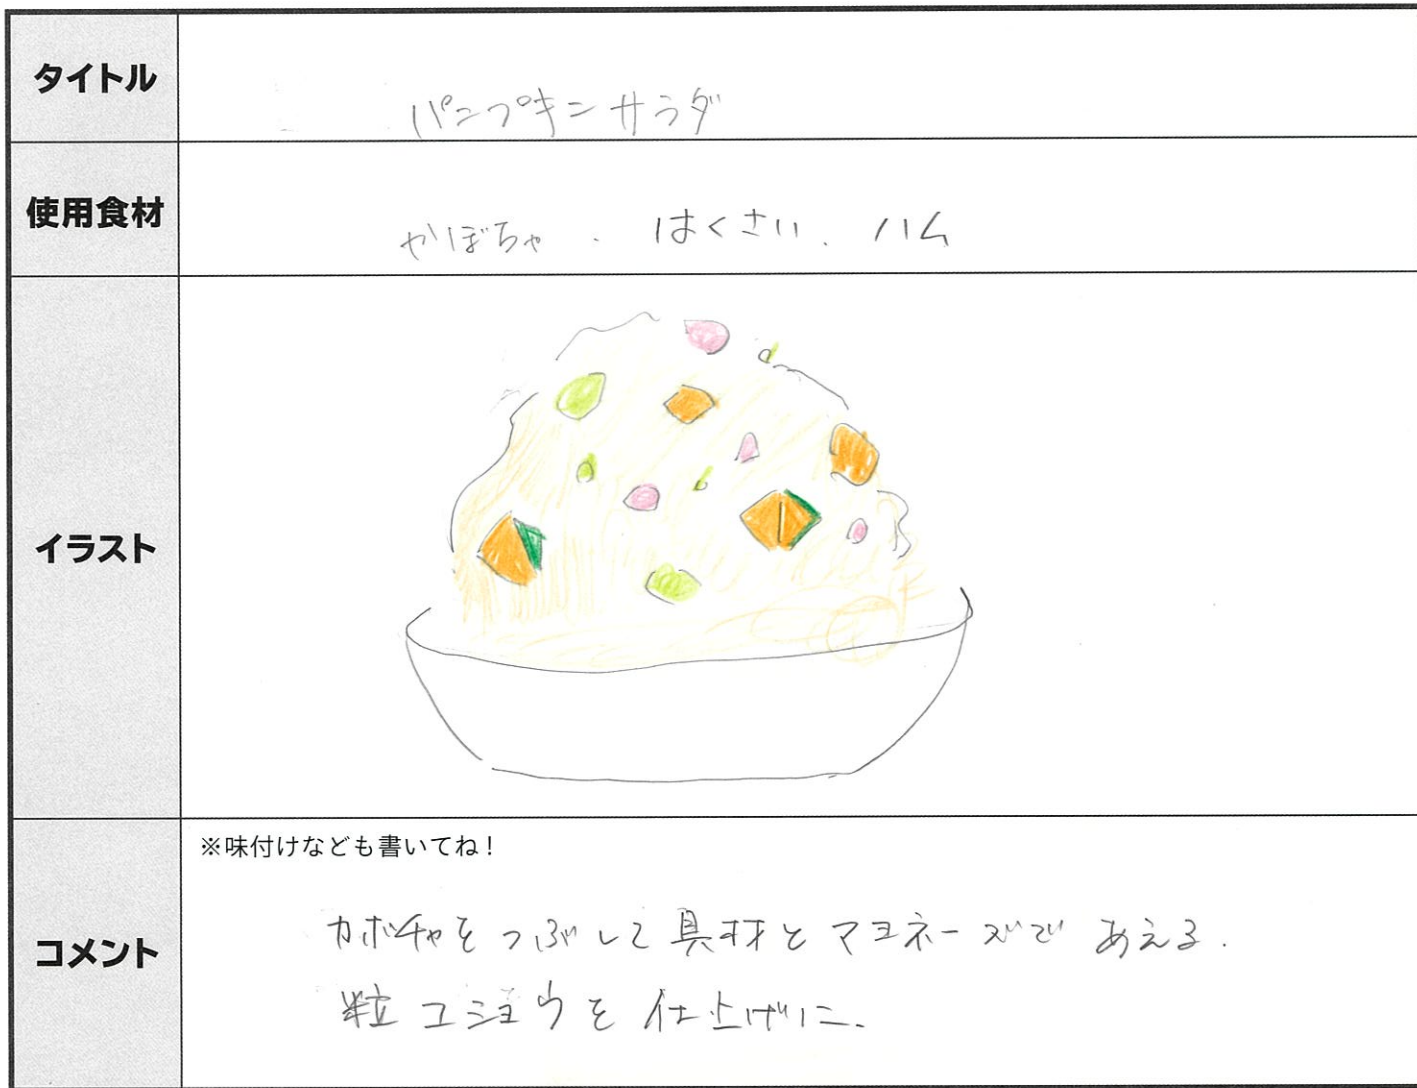 タイトル
パンプキンサラダ
使用食材
かぼちゃ．はくさい．ハム
イラスト
コメント
※味付けなども書いてね！
カボチャをつぶして具材とマヨネーズであえる．
粒コショウを仕上げに．